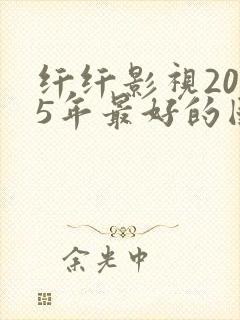 纤纤影视20
5年最好的
余光中